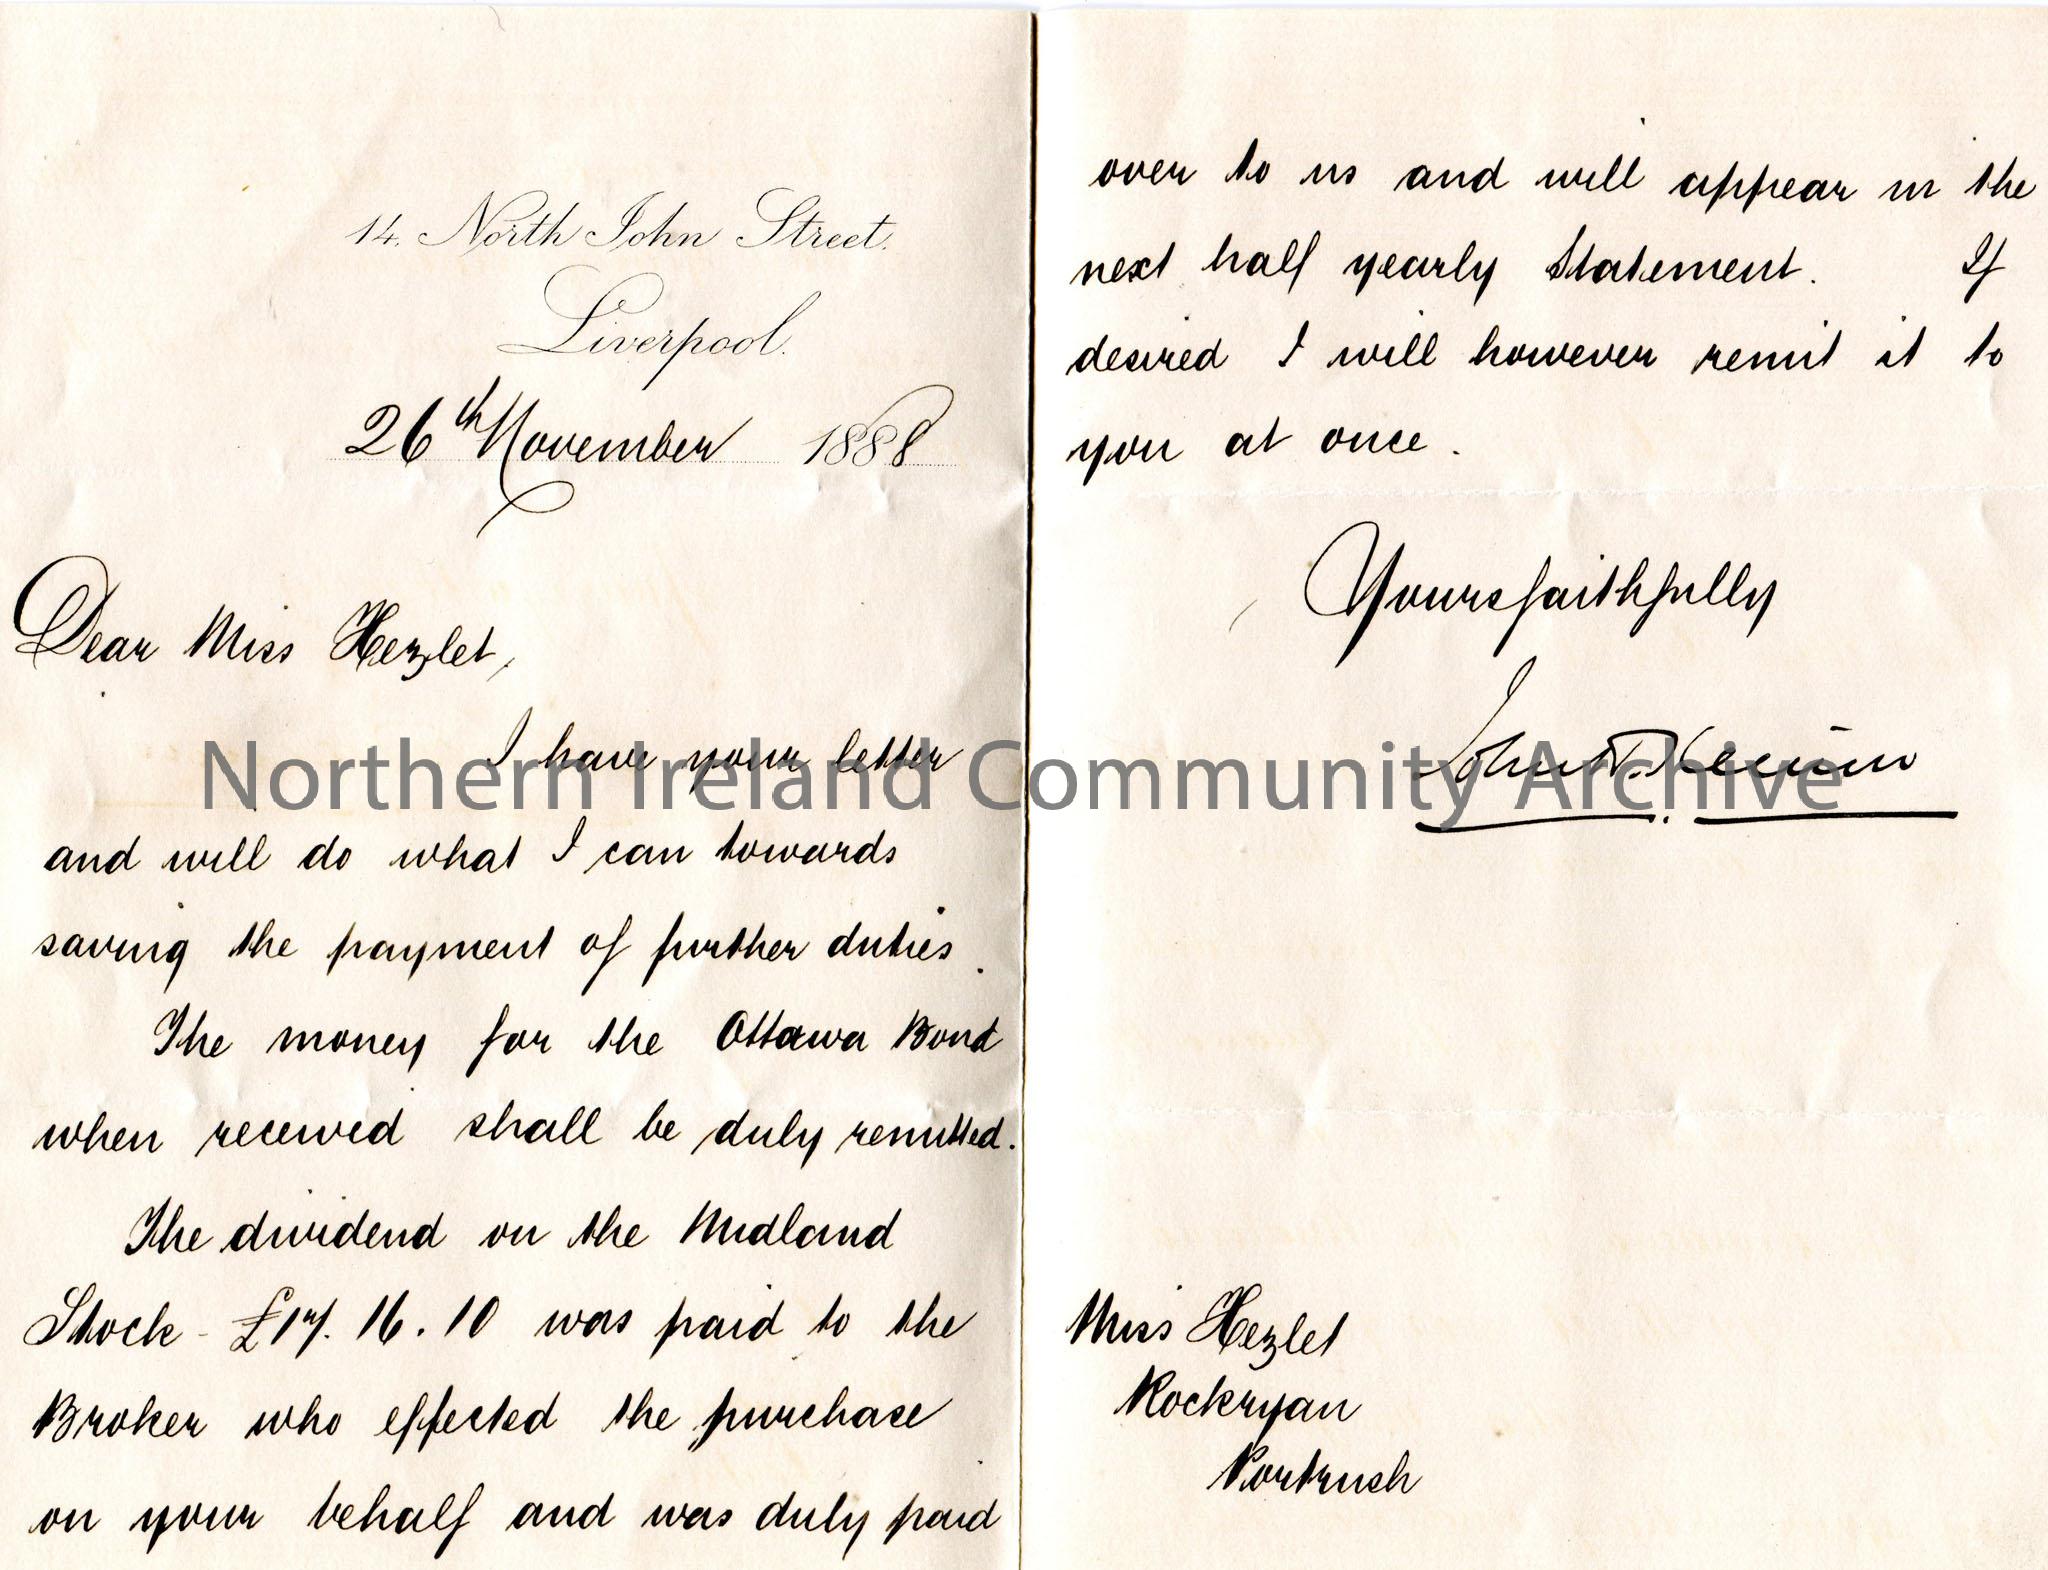 14. North John Street.
Liverpool.
26th November 1888
Dear Miss Hezlet,
I have your letter
and will do what I can towards
saving the payment of further duties.
The money for the Ottawa Bond
when received shall be duly remitted.
The dividend on the Midland
Stock - £17. 16. 10 was paid to the
Broker who effected the purchase
on your behalf and was duly paid
over to us and will appear in the
next half yearly Statement. If
desired I will however remit it to
you at once.
Yours faithfully
John
Miss Hezlet
Rockryan
Portrush
Northern Ireland Community Archive